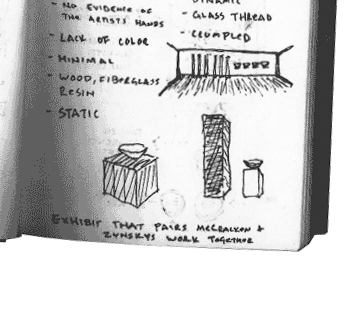 - NO EVIDENCE OF
THE ARTISTS HANDS
- LACK OF COLOR
- MINIMAL
- WOOD, FIBERGLASS
RESIN
- STATIC
DYNAMIC
- GLASS THREAD
- CRUMPLED
EXHIBIT THAT PAIRS MCCRACKEN +
ZYNSKYS WORK TOGETHER